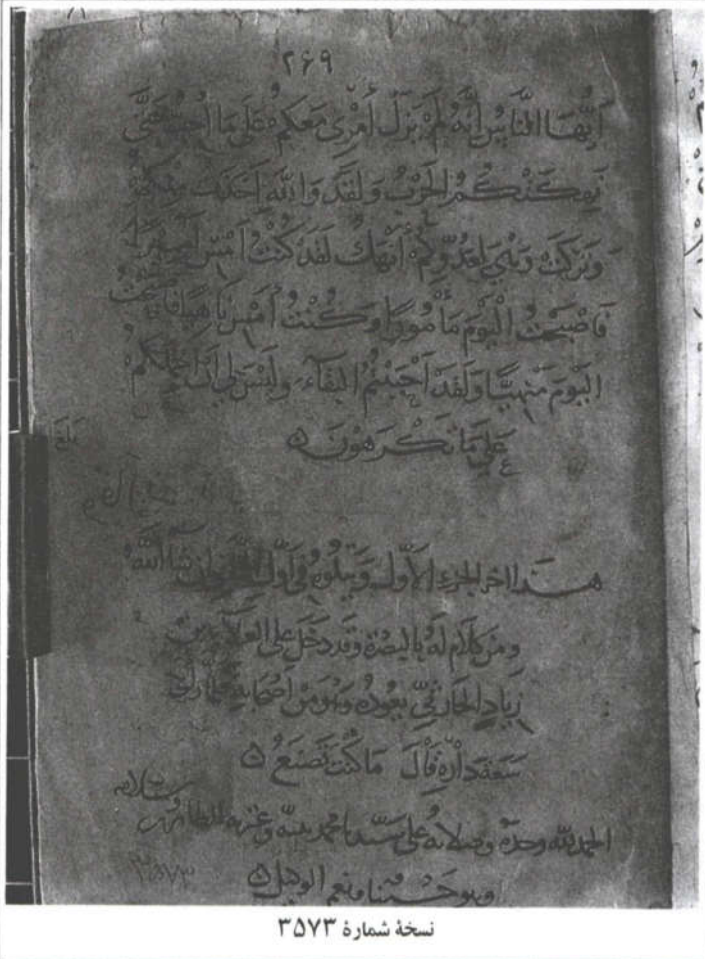 ٢۶٩
أَيُّهَا النَّاسُ إِنَّهُ لَمْ يَزَلْ أَمْرِي مَعَكُمْ عَلَى مَا أُحِبُّ حَتَّى
نَهِكَتْكُمُ الْحَرْبُ وَلَقَدْ وَاللهِ أَخَذَتْ مِنْكُمْ
وَتَرَكَتْ وَهِيَ لِعَدُوِّكُمْ أَنْهَكُ لَقَدْ كُنْتُ أَمْسِ أَمِيرًا
فَأَصْبَحْتُ الْيَوْمَ مَأْمُورًا وَكُنْتُ أَمْسِ نَاهِيًا فَأَصْبَحْتُ
الْيَوْمَ مَنْهِيًّا وَلَقَدْ أَحْبَبْتُمُ الْبَقَاءَ وَلَيْسَ لِي أَنْ أَحْمِلَكُمْ
عَلَى مَا تَكْرَهُونَ
بلغ
هذا آخر الجزء الأول ويتلوه في أول الثاني إن شاء الله
ومن كلام له بالبصرة وقد دخل على العلاء بن
زياد الحارثي يعوده وهو من أصحابه فلما رأى
سعة داره قال ما كنت تصنع
الحمد لله وحده وصلاته على سيدنا محمد نبيه وعترته الطاهرين وسلامه
وهو حسبنا ونعم الوكيل
٣٥٧٣
نسخۀ شمارۀ ۳۵۷۳